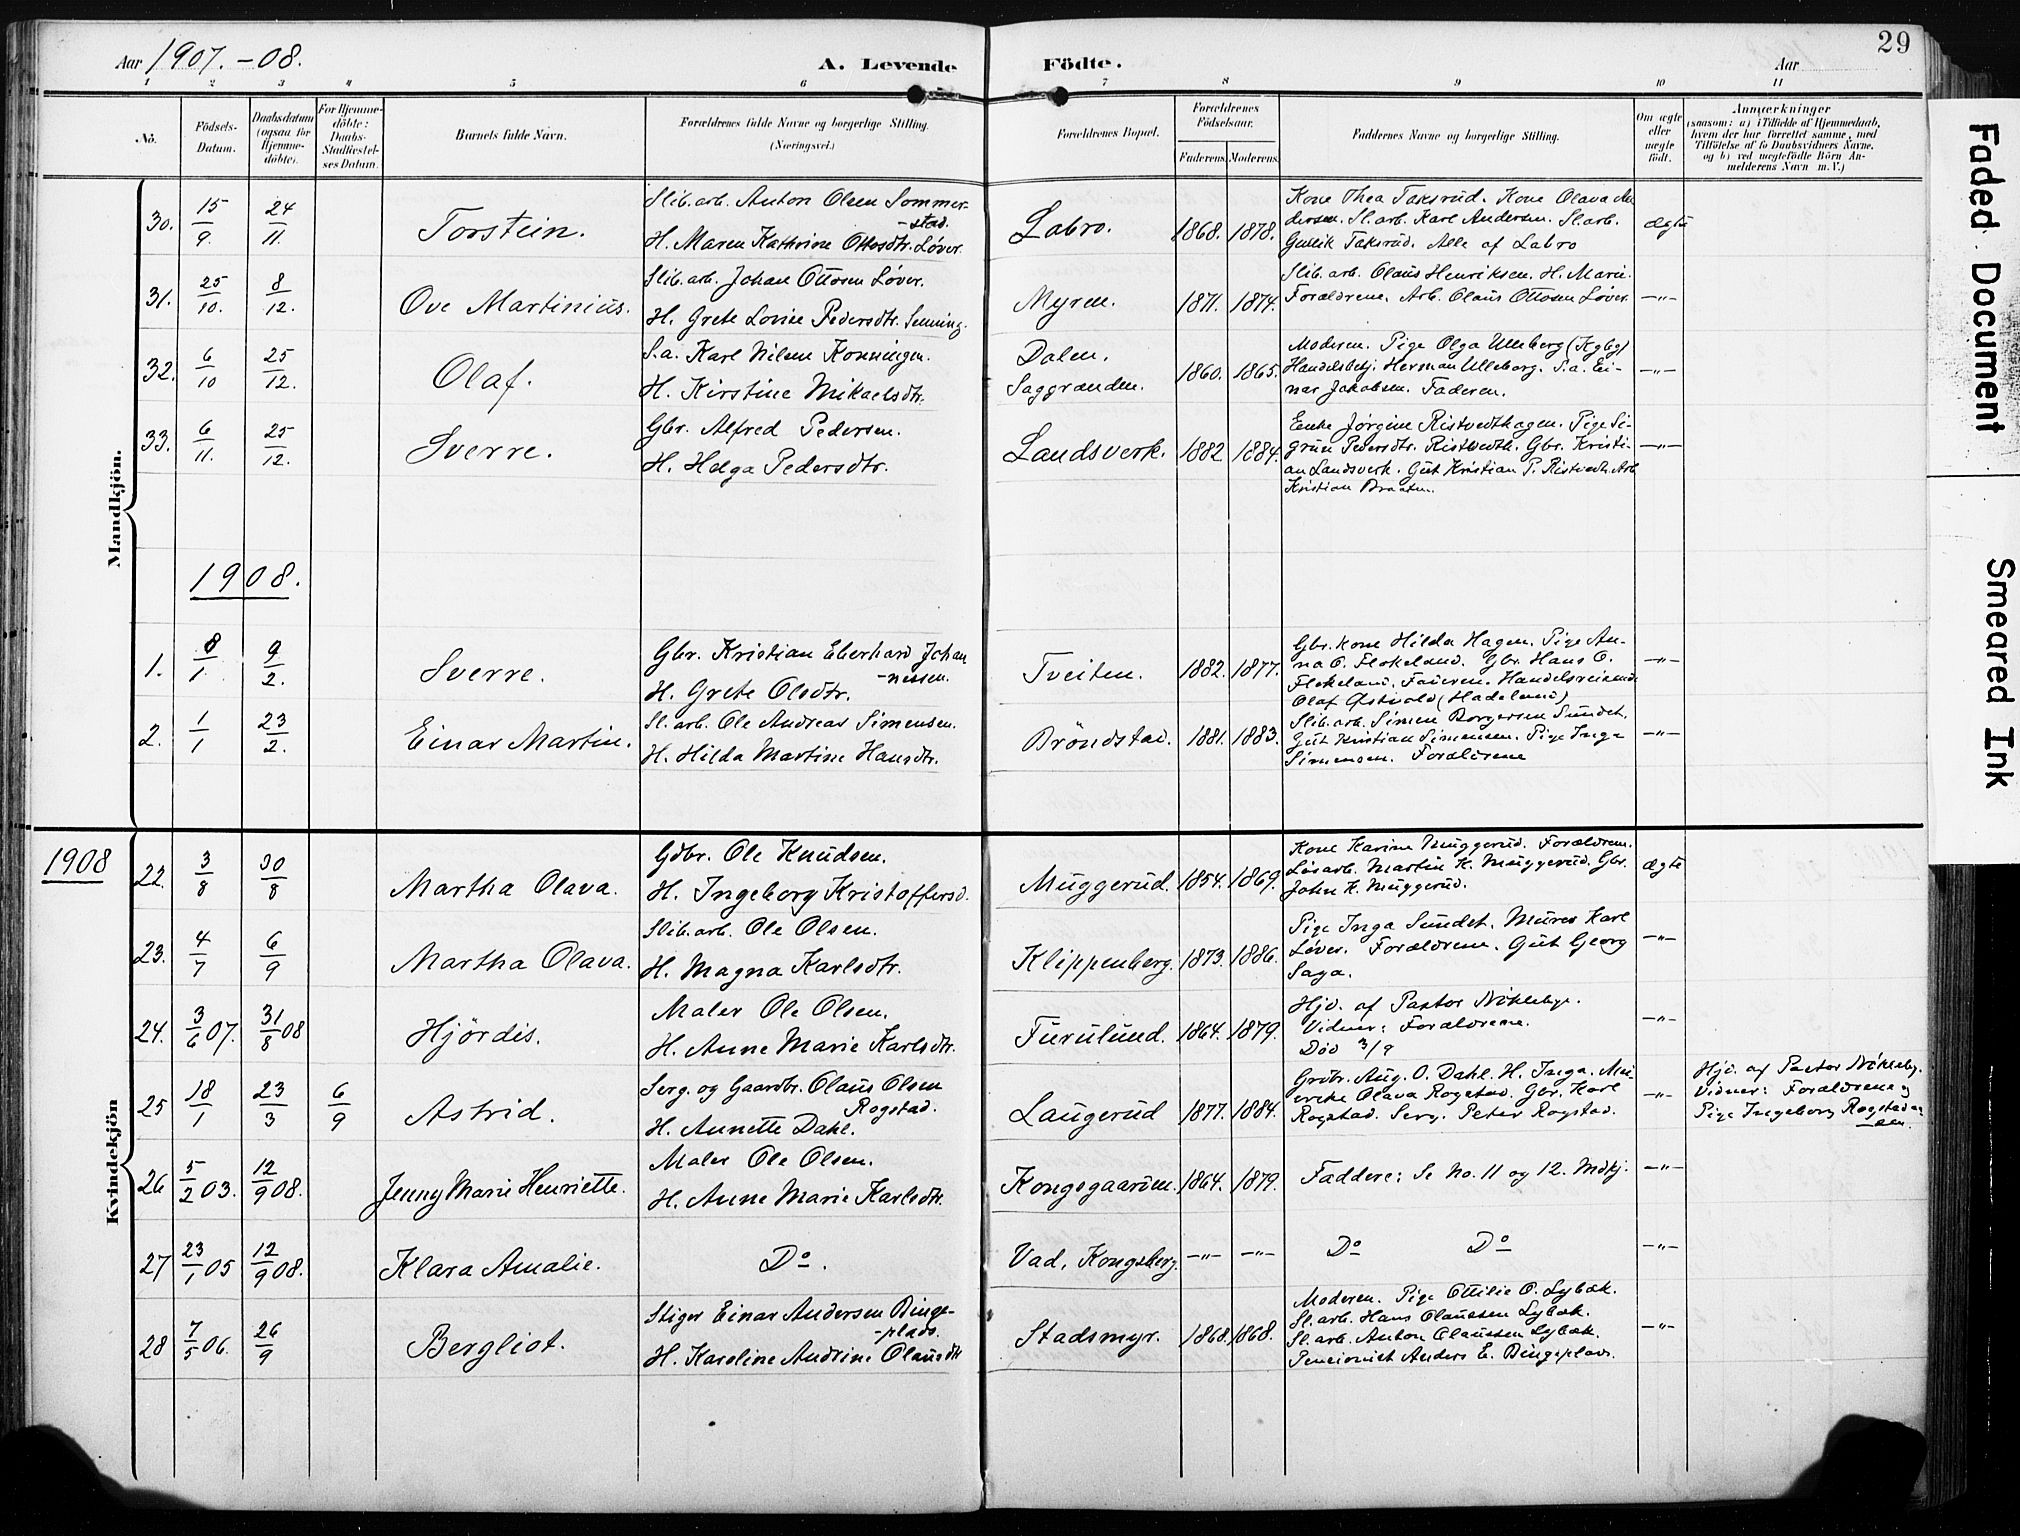 Aar 1907.-08.
A. Levende Födte.
Aar
29
1 2 3 4 5 6 7 8 9 10 11
No.
Födsels-Datum.
Daabsdatum (ogsaa for Hjemmedöbte).
For Hjemmedöbte: Daabs-Stadfæstelses Datum.
Barnets fulde Navn.
Forældrenes fulde Navne og borgerlige Stilling. (Næringsvei.)
Forældrenes Bopæl.
Forældrenes Födselsaar.
Faderens. Moderens.
Faddernes Navne og borgerlige Stilling.
Om ægte eller uægte födt.
Anmærkninger
(saasom: a) i Tilfælde af Hjemmedaab, hvem der har forrettet samme, med Tilföielse af to Daabsvidners Navne, og b) ved uægtefödte Börn Anmelderens Navn m.V.)
Mandkjön.
30. 15/9. 24/11. Torstein.
Slib.arb. Anton Olsen Sommer-
-stad.
H. Maren Kathrine Ottosdtr. Løver.
Labro. 1868. 1878.
Kone Thea Taksrud. Kone Olava An-
dersen. Sl.arb. Karl Andersen. Sl.arb.
Gullik Taksrud. Alle af Labro
ægte
31. 25/10. 8/12. Ove Martinius.
Slib.arb. Johan Ottosen Løver.
H. Grete Lovise Pedersdtr. Senning.
Myren. 1871. 1874.
Slib.arb. Olaus Henriksen. H. Marie.
Forældrene. Arb. Olaus Ottosen Løver.
-"-
32. 6/10 25/12. Olaf.
S.a. Karl Nilsen Konningen.
H. Kirstine Mikaelsdtr.
Dalen.
Saggrenden. 1860. 1865.
Moderen. Pige Olga Ulleberg (Kgbg)
Handelsbetj. Herman Ulleberg. S.a. Ei-
nar Jakobsen. Faderen.
-"-
33. 6/11. 25/12. Sverre.
Gbr. Alfred Pedersen.
H. Helga Pedersdtr.
Landsverk. 1882. 1884.
Enke Jørgine Ristvedthagen. Pige Si-
grun Pedersdtr. Ristvedth. Gbr. Kristi-
an Landsverk. Gut Kristian P. Ristvedth. Arb.
Kristian Braaten.
-"-
1908.
1. 8/1. 9/2. Sverre.
Gbr. Kristian Eberhard Johan
-nessen.
H. Grete Olsdtr.
Tveiten. 1882. 1877.
Gbr. kone Hilda Hagen. Pige An-
na O. Flokeland. Gbr. Hans O.
Flokeland. Faderen. Handelsreisende
Olaf Østvold (Hadeland)
-"-
2. 1/1 23/2. Einar Martin.
Sl.arb. Ole Andreas Simensen.
H. Hilda Martine Hansdtr.
Bröndstad. 1881. 1883.
Slib.arb. Simen Borgersen Sundet.
Gut Kristian Simensen. Pige Inga
Simensen. Forældrene
-"-
Kvindekjön
1908
22. 3/8 30/8 Martha Olava.
Gdbr. Ole Knudsen.
H. Ingeborg Kristoffersd.
Muggerud. 1854. 1869.
Kone Karine Muggerud. Forældrene.
Løsarb. Martin K. Muggerud. Gbr.
John K. Muggerud.
ægte
23. 4/7 6/9 Martha Olava.
Slib.arb. Ole Olsen.
H. Magna Karlsdtr.
Klippenberg. 1873. 1886.
Pige Inga Sundet. Murer Karl
Løver. Forældrene. Gut Georg
Saga.
-"-
24. 3/6 07. 31/8 08 Hjördis.
Maler Ole Olsen.
H. Anne Marie Karlsdtr.
Furulund. 1864. 1879.
Hjd. af Pastor Nikleby.
Vidner: Forældrene.
Død 3/9
-"-
25 18/1 23/3 6/9 Astrid.
Serg. og Gaardbr. Olaus Olsen
Rogstad.
H. Annette Dahl.
Laugerud 1877. 1884.
Grdbr. Aug. O. Dahl. H. Inga.
Olava Rogstad. Gbr. Karl
Rogstad. Serg. Peter Rogstad.
-"-
Hjd. af Pastor Nikleby.
Vidner: Forældrene og
Pige Ingeborg Rogstad
26 5/2 03. 12/9 08. Jenny Marie Henriette.
Maler Ole Olsen.
H. Anne Marie Karlsdtr.
Kongsgaarden. 1864. 1879.
Faddere: Se No. 11 og 12. Mdkj.
-"-
27 23/1 05 12/9 08. Klara Amalie.
Do.
Vad, Kongsberg. -"- -"-
Do Do
-"-
28 7/5 06. 26/9 Bergliot.
Stiger Einar Andersen Binge-
-plads.
H. Karoline Andrine Olausdtr
Stadsmyr. 1868. 1868.
Moderen. Pige Ottilie O. Lybæk.
Sl.arb. Hans Olaussen Lybæk.
Sl.arb. Anton Olaussen Lybæk.
Pensionist Anders E. Bingeplads.
-"-
Faded Document
Smeared Ink